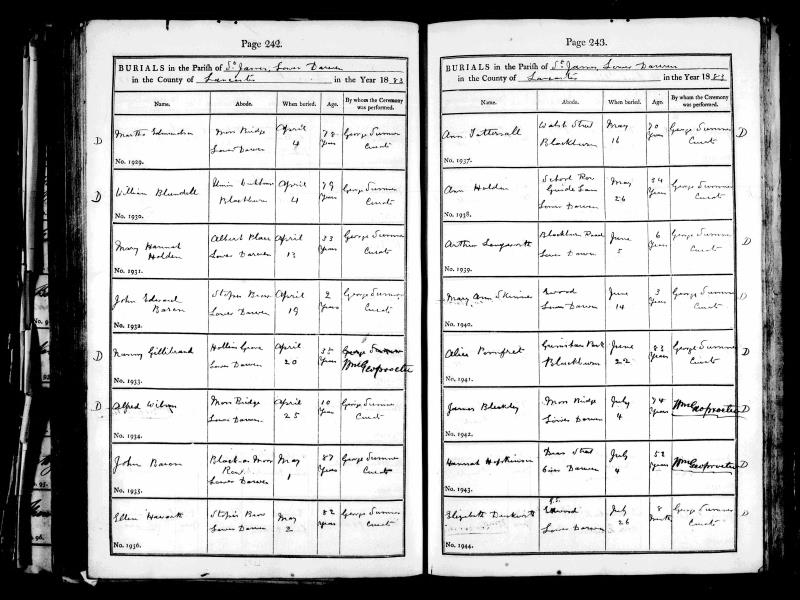 Page 242.
BURIALS in the Parish of St James, Lower Darwen
in the County of Lancaster in the Year 1883
Name. Abode. When buried. Age. By whom the Ceremony was performed.
D Martha Edmundson Moss Bridge April 78 George Sumner
Lower Darwen 4 Years Curate
No. 1929.
D William Blundell April 79 George Sumner
Blackburn 4 Years Curate
No. 1930.
Mary Hannah Albert Place April 33 George Sumner
Holden Lower Darwen 13 Years Curate
No. 1931.
John Edward Stopes Brow April 2 George Sumner
Baron Lower Darwen 19 Years Curate
No. 1932.
D Nanny Gillibrand Hollin Grove April 35 George Sumner
Lower Darwen 20 Years Wm Geo Procter
No. 1933.
D Alfred Wilson Moss Bridge April 10 George Sumner
Lower Darwen 25 Years Curate
No. 1934.
John Baron Black-a-Moor May 87 George Sumner
Row 1 Years Curate
Lower Darwen
No. 1935.
Ellen Haworth Stopes Brow May 82 George Sumner
Lower Darwen 2 Years Curate
No. 1936.
Page 243.
BURIALS in the Parish of St James, Lower Darwen
in the County of Lancaster in the Year 1883
Name. Abode. When buried. Age. By whom the Ceremony was performed.
Ann Tattersall Walsh Street May 70 George Sumner D
Blackburn 16 Years Curate
No. 1937.
Ann Holden School Row May 34 George Sumner
Guide Lane 26 Years Curate
Lower Darwen
No. 1938.
Arthur Longworth Blackburn Road June 6 George Sumner D
Lower Darwen 5 Years Curate
No. 1939.
Mary Ann Skinner Ewood June 3 George Sumner D
Lower Darwen 14 Years Curate
No. 1940.
Alice Pomfret Grimshaw Park June 83 George Sumner D
Blackburn 22 Years Curate
No. 1941.
James Bleakley Moss Bridge July 74 Wm Geo Procter D
Lower Darwen 4 Years
No. 1942.
Hannah Hopkinson Street July 52 Wm Geo Procter D
Over Darwen 4 Years
No. 1943.
Elizabeth Duckworth Ewood July 8 George Sumner D
Lower Darwen 26 Months Curate
No. 1944.